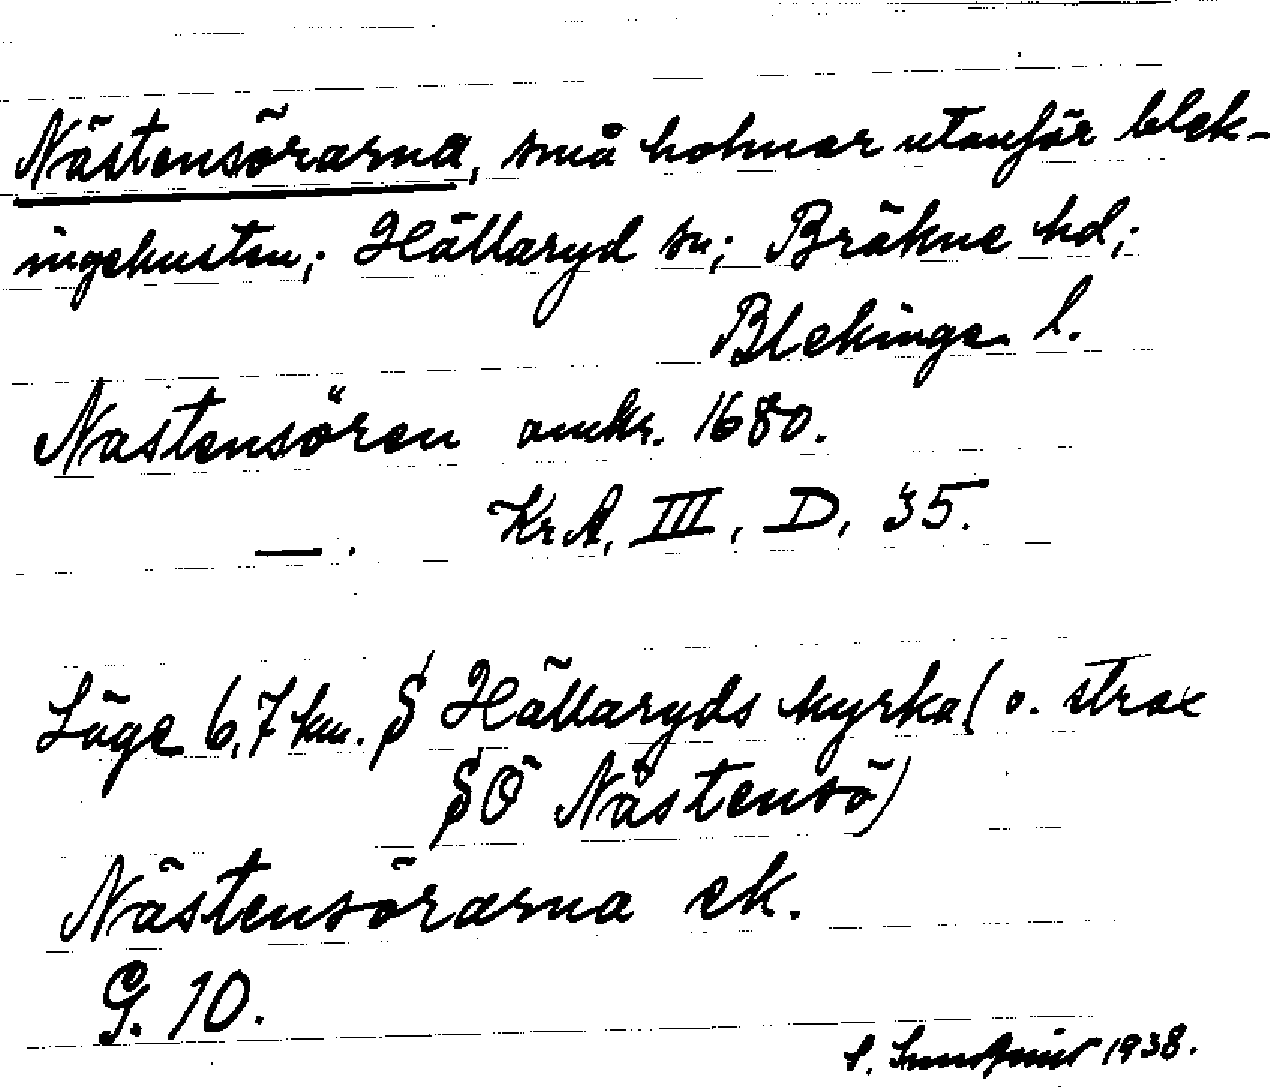 Nästensörarna, små holmar utanför blek-
ingekusten; Hällaryd sn; Bräkne hd;
Blekinge l.
Nastensören omkr. 1680.
— . KrA, III, D, 35.
Läge 6,7 km. S Hällaryds kyrka (o. strax
SÖ Nästensö)
Nästensörarna ek.
G. 10.
1938.